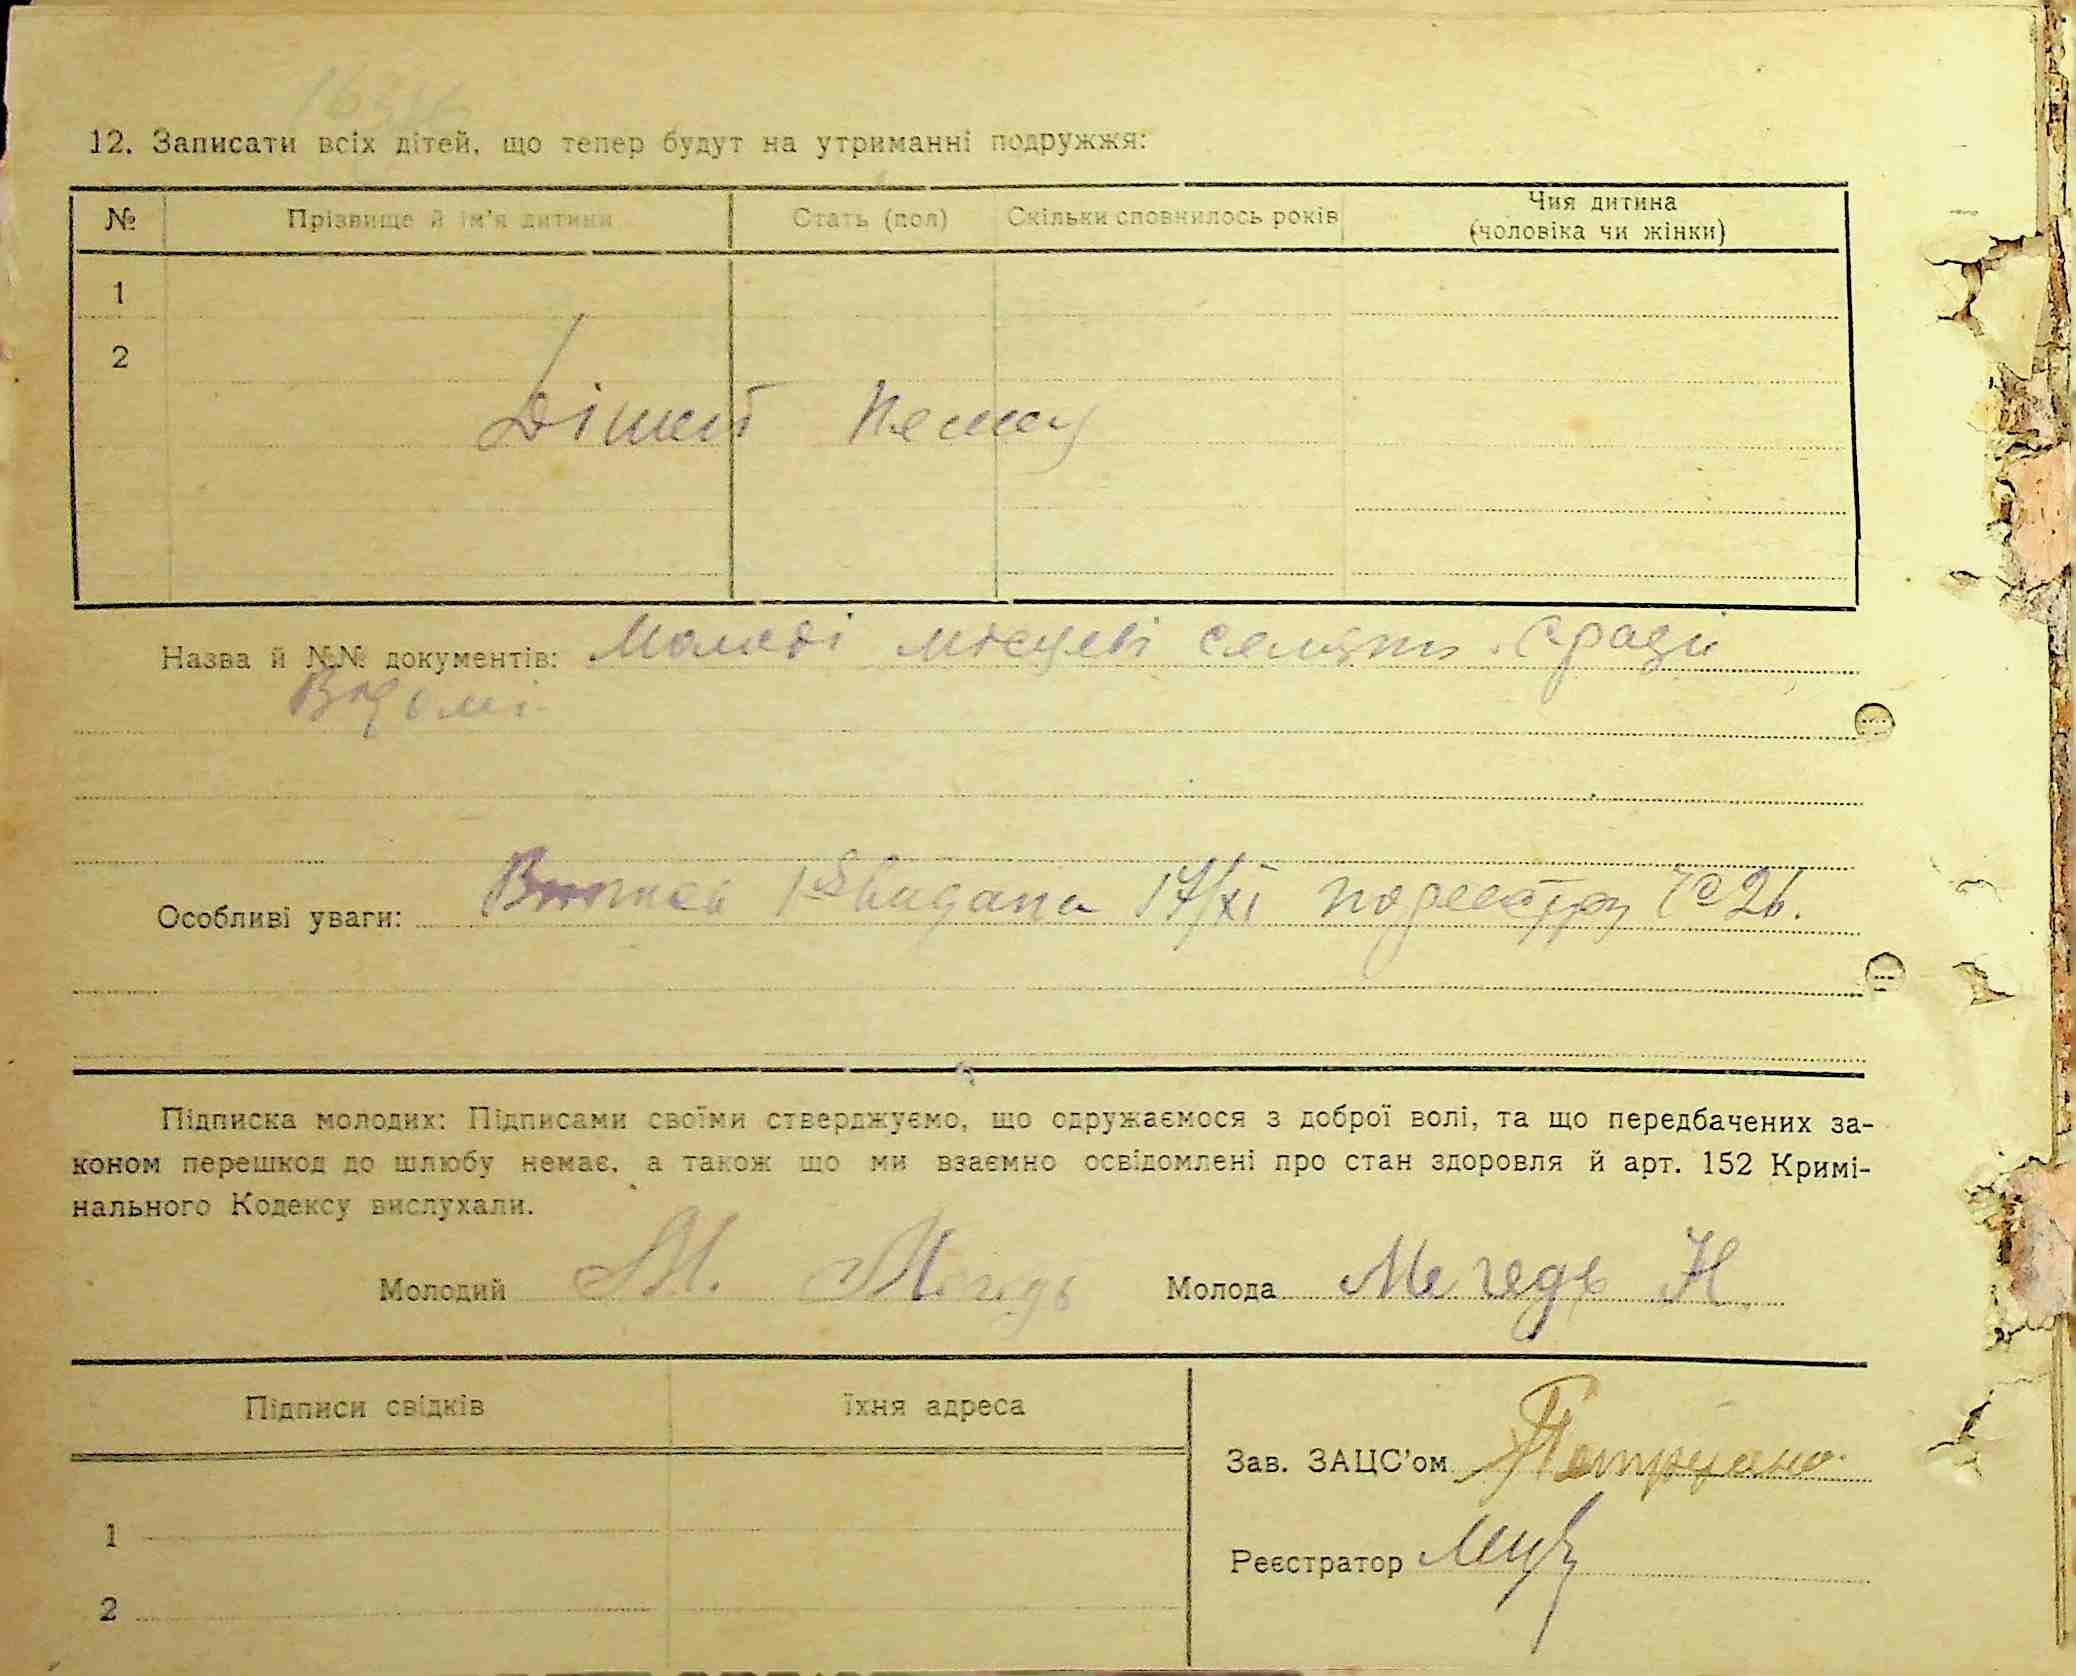 12. Записати всіх дітей, що тепер будут на утриманні подружжя:
№ Прізвище й ім'я дитини Стать (пол) Скільки сповнилось років Чия дитина (чоловіка чи жінки)
1
2
Дітей нема
Назва й №№ документів: Молоді місцеві селяни сраді
Відомі
Особливі уваги: Виписка видана 17/XI по реєстру № 26.
Підписка молодих: Підписами своїми стверджуємо, що одружаємося з доброї волі, та що передбачених за-
коном перешкод до шлюбу немає, а також що ми взаємно освідомлені про стан здоровля й арт. 152 Кримі-
нального Кодексу вислухали.
Молодий М. Мегедь Молода Мегедь Н
Підписи свідків Їхня адреса
Зав. ЗАЦС'ом
1
Реєстратор
2